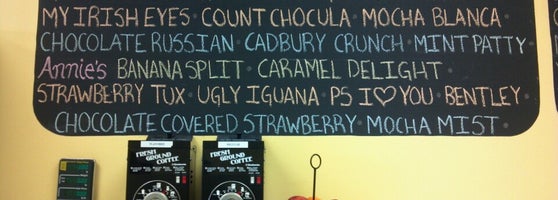 MY IRISH EYES · COUNT CHOCULA · MOCHA BLANCA ·
CHOCOLATE RUSSIAN · CADBURY CRUNCH · MINT PATTY ·
Annie's BANANA SPLIT · CARAMEL DELIGHT ·
STRAWBERRY TUX · UGLY IGUANA · PS I ♡ YOU · BENTLEY ·
CHOCOLATE COVERED STRAWBERRY · MOCHA MIST ·
FRESH GROUND COFFEE FRESH GROUND COFFEE